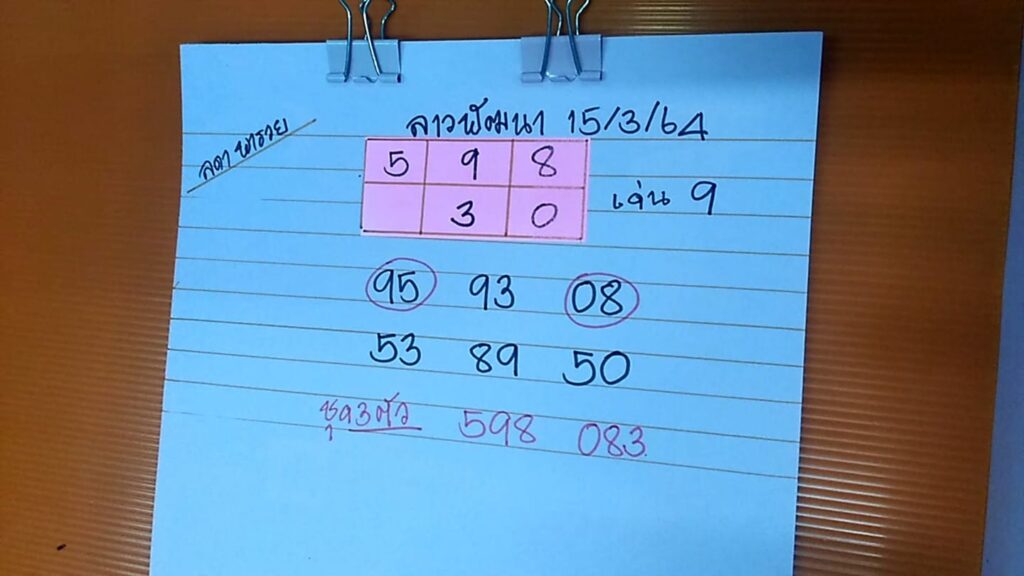 ลาวพัฒนา 15/3/64
ลดา พารวย
5 9 8
3 0
เจ่น 9
95 93 08
53 89 50
ชุด 3 ตัว 598 083